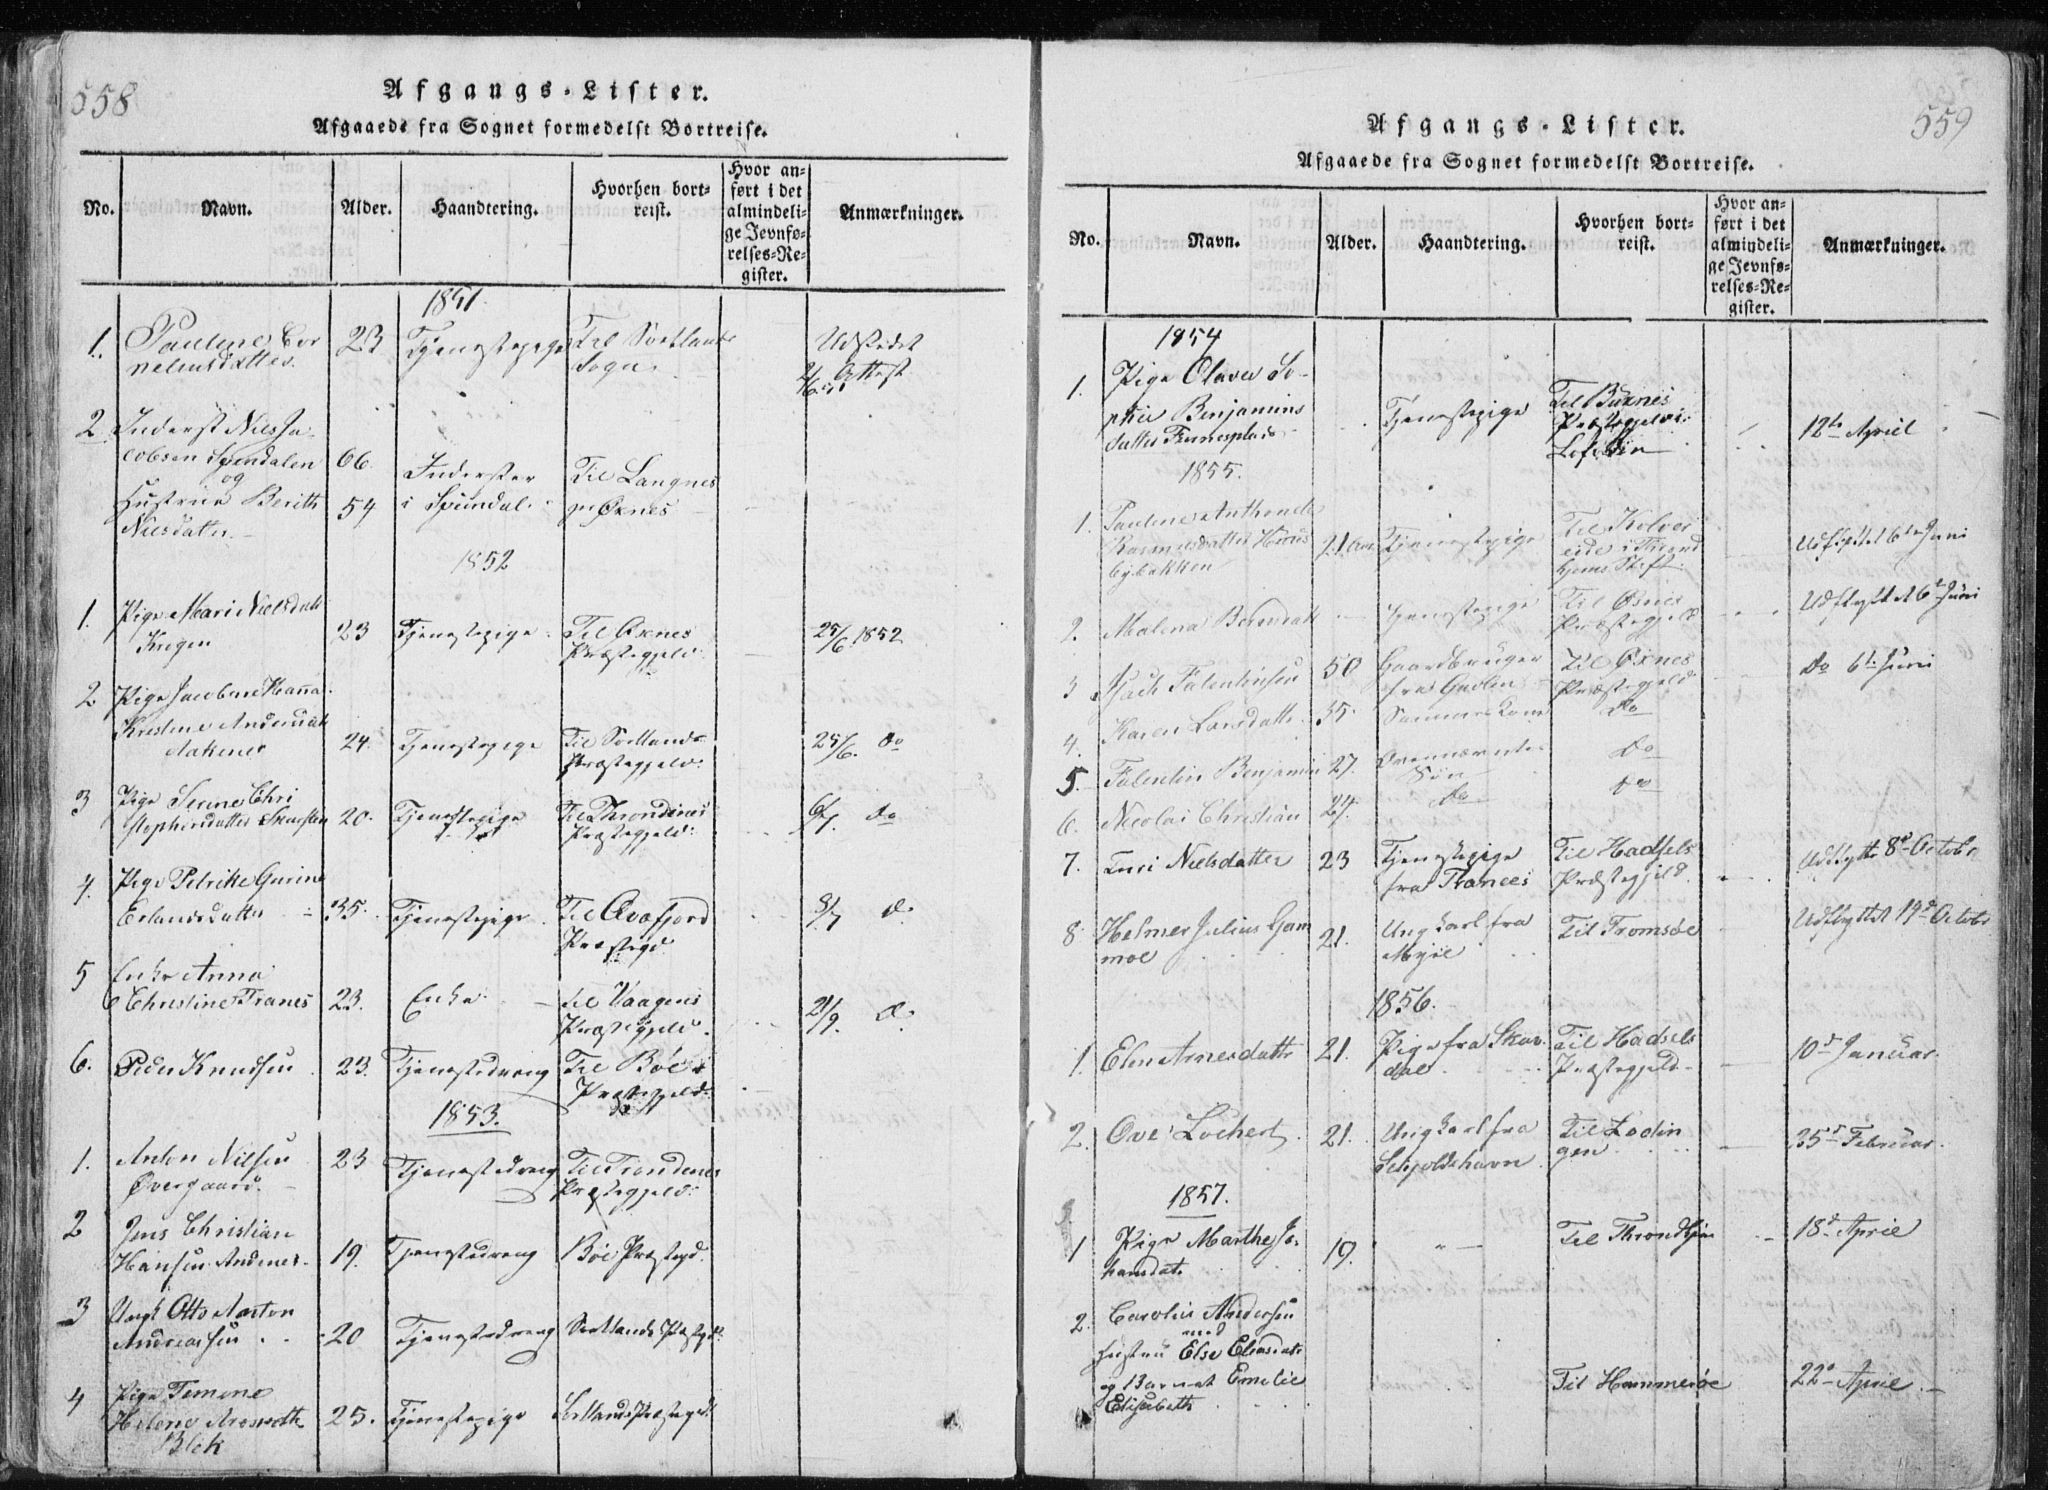 558
Afgangs-Lister.
Afgaaede fra Sognet formedelst Bortreise.
No. Navn. Alder. Haandtering. Hvorhen bortreist. Hvor anført i det almindelige Jevnførelses-Register. Anmærkninger.
1851.
1. Pauline Cornelius datter. 23 Tjenestepige Til Sortlands Sogn. Udstedt Attest
2 Inderst Niels Jacobsen 66. Inderster Til Langnes
og Hustrue Berith Nielsdatter. 54 i pr Øxnes
1852
1. Pige Mari Nielsdatt 23 Tjenestepige Til Øxnes Præstegjeld. 25/6. 1852
2. Pige Jacobine Hanna Kristine 24. Tjenestepige Til Sortlands Præstegjeld. 25/6. do
3 Pige Serine Christophersdatter 20. Tjenestepige Til Throndenes Præstegjeld. do
4. Pige Petrikke Gurine Erlandsdatter 35. Tjenestepige Til Qvæfjord Præstegd 8/7 do
5 Enke Anna Christine Tranes 23. Enke Til Vaagens Præstegjeld. 21/9. do
6. Peder Knudsen 23. Tjenestedreng Til Böe Præstegjeld.
1853.
1. Anton Nilsen Overgaard. 23 Tjenestedreng Til Trondenes Præstegjeld.
2 Jens Christian Hansen Andenes. 19. Tjenestedreng Böe Præstegd.
3 Ungk Otto Anton Andreassen 20 Tjenestedreng Sortlands Præstegd.
4 Pige Helene Blek 25. Tjenestepige Sortlands Præstegd.
559
Afgangs-Lister.
Afgaaede fra Sognet formedelst Bortreise.
No. Navn. Alder. Haandtering. Hvorhen bortreist. Hvor anført i det almindelige Jevnførelses-Register. Anmærkninger.
1854
1. Pige Olava Sophie Benjamins datter Tjenestepige Til Buxnes Præstegjeld i Lofoden 12te April
1855.
1. Pauline 21 Tjenestepige Til Kolvereide i Trondhjems Stift. Udflyttet 6te Juni
2. Malena Tjenestepige Til Øxnes Præstegjeld Udflyttet 6te Juni
3 Isach Falentinsen 50 Gaardbruger fra Til Øxnes Præstegjeld Do 6te Juni
4. Karen Larsdatter 35. Sammes Kone Do
5. Falentin Benjamin 27. Ovennævntes Søn Do
6. Nicolai Christian 24. do do
7. Guri Nielsdatter 23 Tjenestepige fra Tranees Til Hadsels Præstegjeld. Udflytte 8de Octobr
8. Helmer Julius 21. Ungkarl fra Til Tromsøe Udflyttet 19de Octobr
1856.
1. Elen Arnesdattr 21. Pige fra Til Hadsels Præstegjeld 10de Januar.
2. Ove Lockert 21. Ungkarl fra Til Lødingen Februar.
1857.
1 Pige Marthe Johansdat. 19. Til Throndhjem 18de April
2. Carolus Andersen med hustru Else og Barnet Emelie Elisabeth Til Hammerøe 22de April